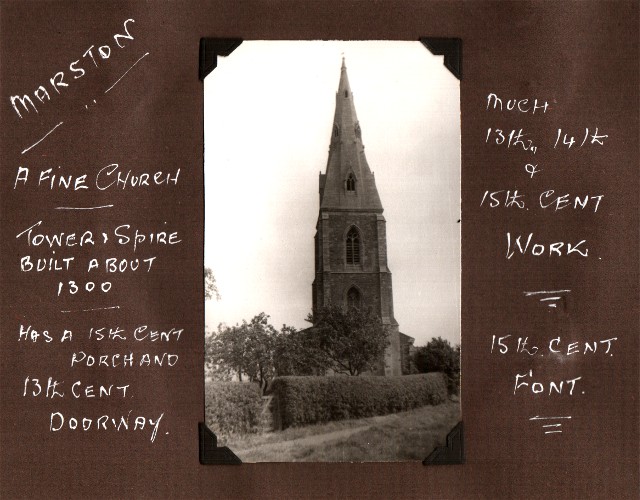 MARSTON
A FINE CHURCH
TOWER & SPIRE
BUILT ABOUT
1300
HAS A 15th CENT
PORCH AND
13th CENT.
DOORWAY.
MUCH
13th,, 14th
&
15th. CENT
WORK.
15th. CENT.
FONT.